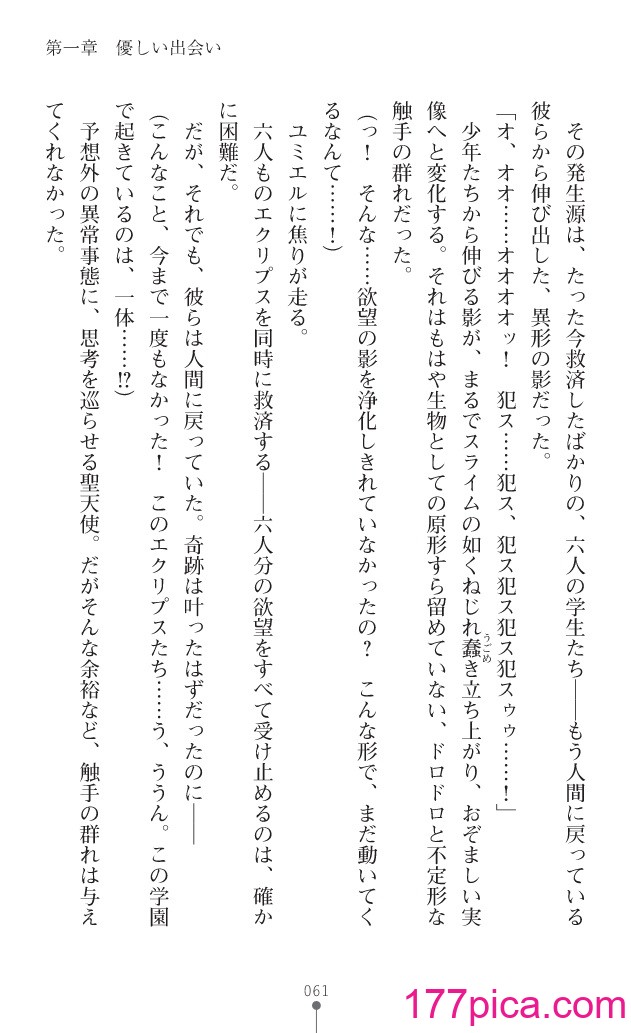 第一章　優しい出会い
その発生源は、たった今救済したばかりの、六人の学生たち――もう人間に戻っている
彼らから伸び出した、異形の影だった。
「オ、オオ……オオオオッ！　犯ス……犯ス、犯ス犯ス犯ス犯スゥゥ……！」
少年たちから伸びる影が、まるでスライムの如くねじれ蠢き立ち上がり、おぞましい実
うごめ
像へと変化する。それはもはや生物としての原形すら留めていない、ドロドロと不定形な
触手の群れだった。
（っ！　そんな……欲望の影を浄化しきれていなかったの？　こんな形で、まだ動いてく
るなんて……！）
ユミエルに焦りが走る。
六人ものエクリプスを同時に救済する――六人分の欲望をすべて受け止めるのは、確か
に困難だ。
だが、それでも、彼らは人間に戻っていた。奇跡は叶ったはずだったのに――
（こんなこと、今まで一度もなかった！　このエクリプスたち……う、ううん。この学園
で起きているのは、一体……!?）
予想外の異常事態に、思考を巡らせる聖天使。だがそんな余裕など、触手の群れは与え
てくれなかった。
061
177pica.com